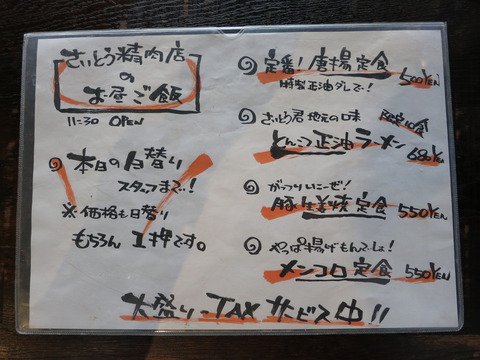 さいとう精肉店
の
お昼ご飯
11:30 OPEN
本日の日替り
スタッフまで!
※価格も日替り
もちろん 1押です。
定番!唐揚定食 500YEN
特製正油ダレで!
さいとう君 地元の味 限定10食
とんこつ正油ラーメン 680YEN
がっつりいこーぜ!
豚生姜焼定食 550YEN
やっぱ揚げもんでしょ!
メンコロ定食 550YEN
大盛り・TAXサービス中!!